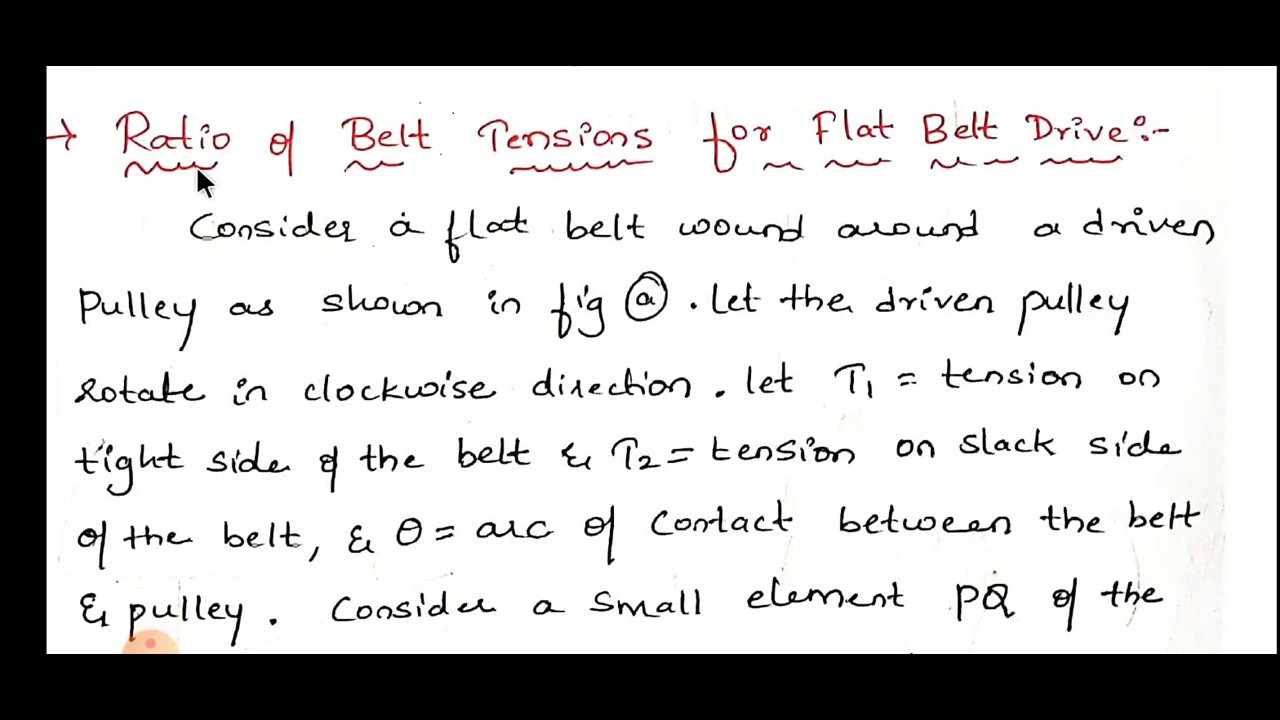 → Ratio of Belt Tensions for Flat Belt Drive:-
Consider a flat belt wound around a driven
Pulley as shown in fig ⓐ. Let the driven pulley
rotate in clockwise direction. let T1 = tension on
tight side of the belt & T2 = tension on slack side
of the belt, & θ = arc of contact between the belt
& pulley. Consider a small element PQ of the